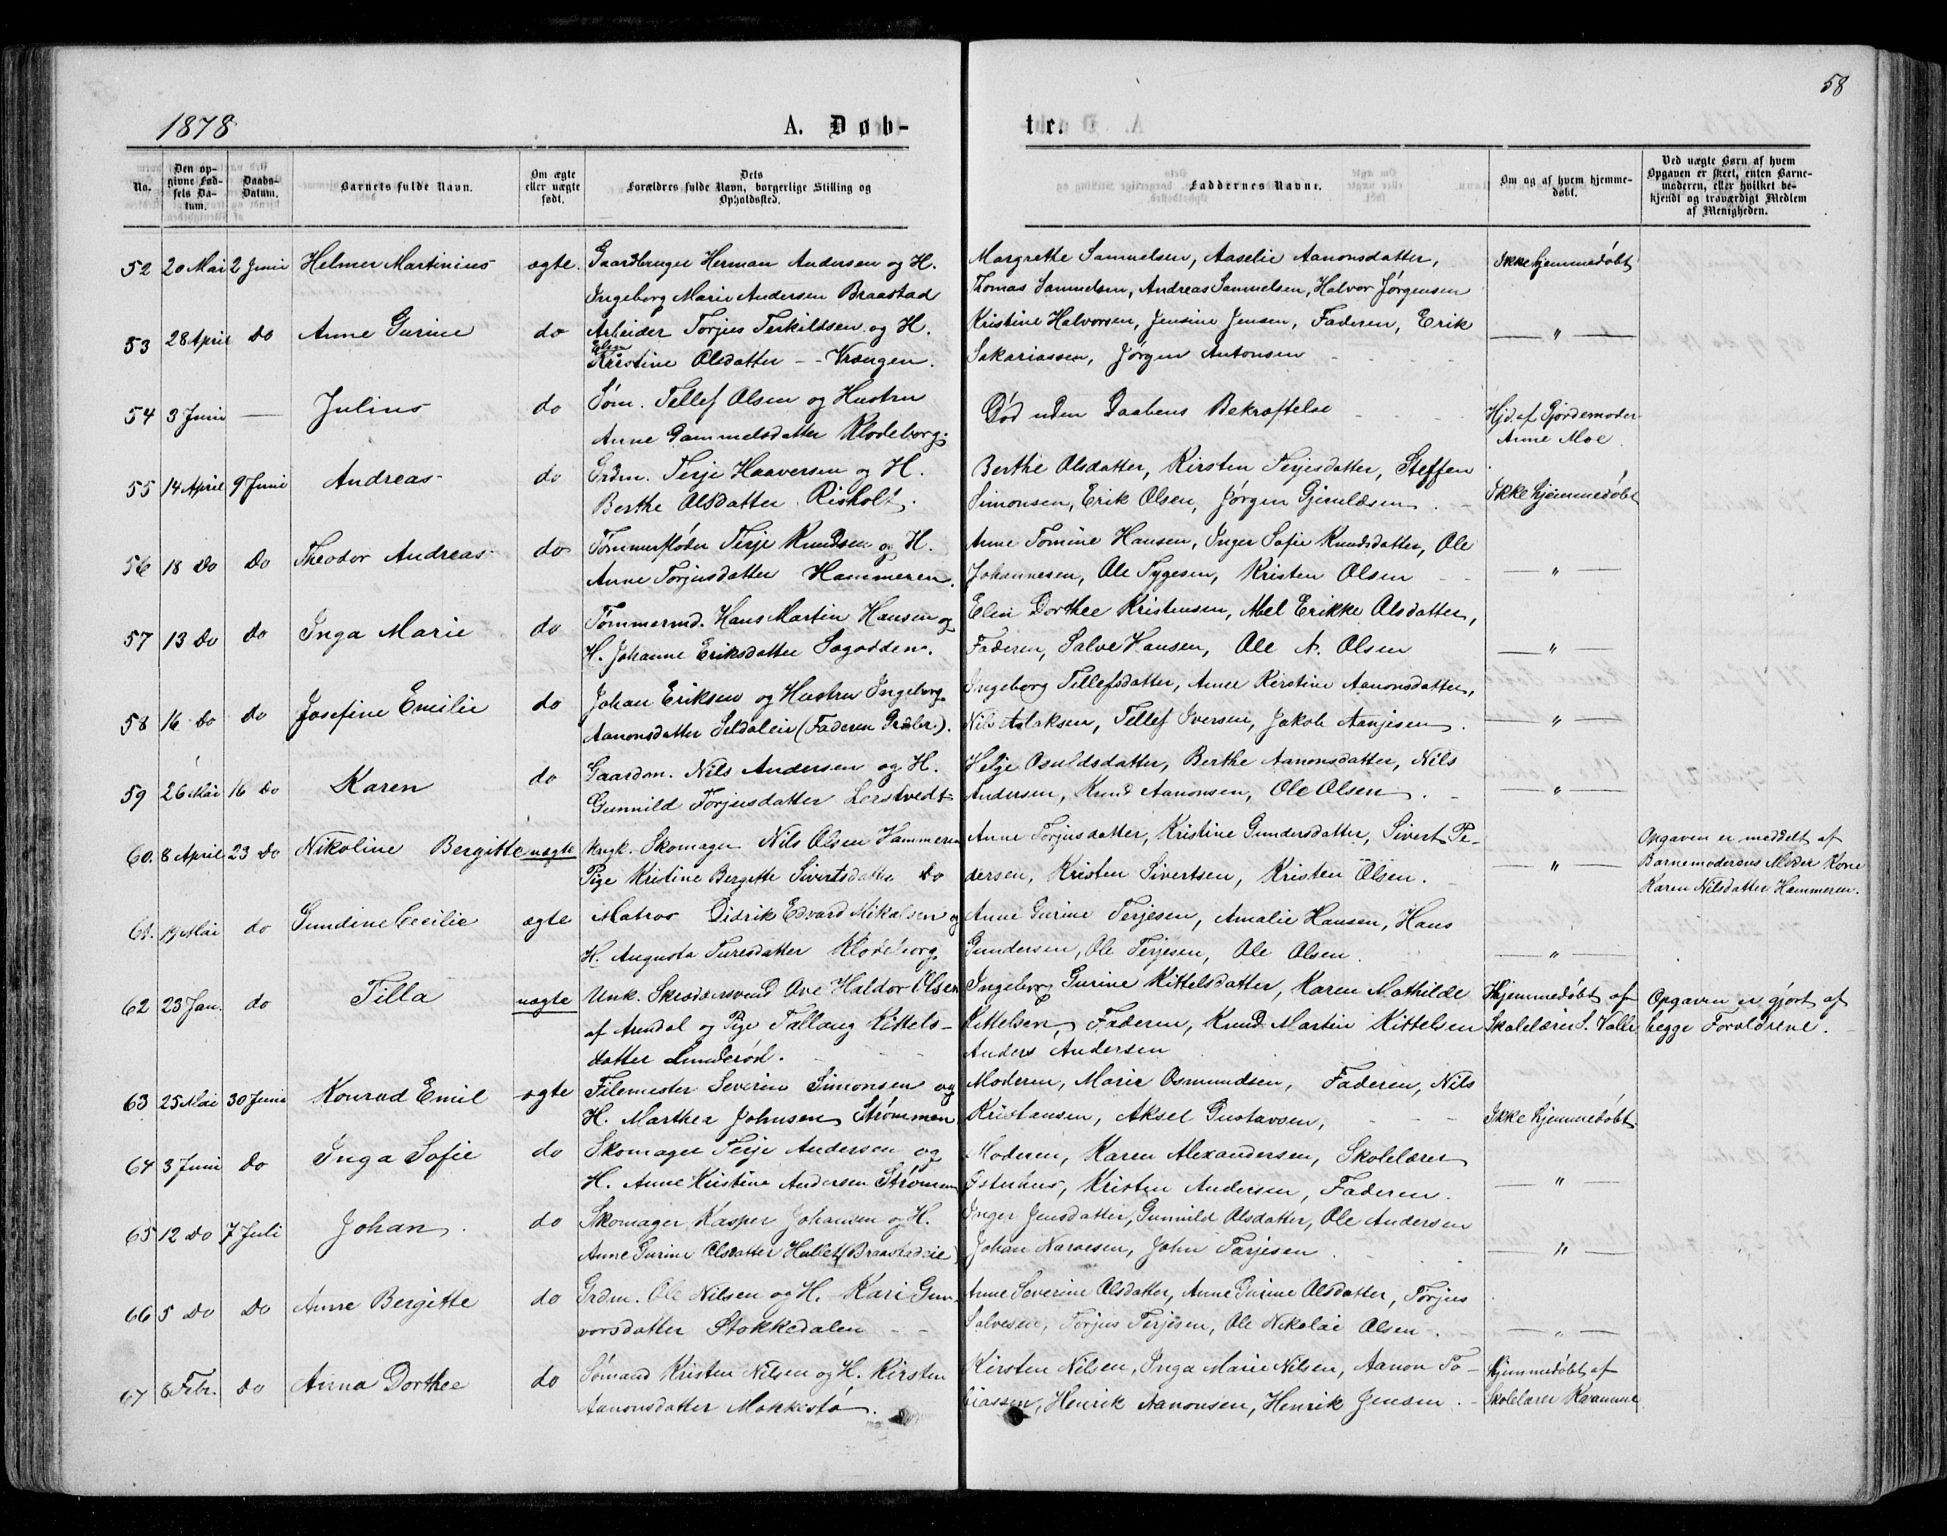 58
1878
A. Døb-
te.
No.
Den op-
givne Fød-
sels Da-
tum.
Daabs-
Datum.
Barnets fulde Navn.
Om ægte
eller uægte
født.
Dets
Forældres fulde Navn, borgerlige Stilling og
Opholdssted.
Faddernes Navne.
Om og af hvem hjemme-
døbt.
Ved uægte Børn af hvem
Opgaven er skeet, enten Barne-
moderen, eller hvilket be-
kjendt og troværdigt Medlem
af Menigheden.
52 20 Mai 2 Juni Helmer Martinius ægte. Gaardbruger Herman Andersen og H. Margrethe Samuelsen, Aaselie Aanonsdatter, Ikke hjemmedøbt
Ingeborg Marie Andersen Braastad Thomas Samuelsen, Andreas Samuelsen, Halvor Jørgensen
53 28 April do Anne Gurine do Arbeider Torjus Terkildsen og H. Kristine Halvorsen, Jensine Jensen, Faderen, Erik — " —
Elen
Kirstine Olsdatter - - Vrængen. Sakariassen, Jørgen Antonsen
54 3 Juni — Julius do Søm. Tellef Olsen og Hustru Død uden Daabens Bekræftelse Hjd. af Gjordemoder
Anne Gammelsdatter Klodeborg. Anne Moe
55 14 April 9 Juni Andreas do Grdm. Terje Haaversen og H. Berthe Olsdatter, Kirsten Terjesdatter, Steffen
Berthe Olsdatter Risholt. Simonsen, Erik Olsen, Jørgen Gjeruldsen. Ikke hjemmedøbt
56 18 do do Theodor Andreas do Tømmerfløder Terje Knudsen og H. Anne Tomine Hansen, Inger Sofie Knudsdatter, Ole
Anne Torjusdatter Hammeren. Johannesen, Ole Tygesen, Kristen Olsen — " —
57 13 do do Inga Marie do Tømmermd. Hans Martin Hansen og Elen Dorthee Kristensen, Mel Erikke Olsdatter,
H. Johanne Eriksdatter Sagodden. Faderen, Salve Hansen, Ole A. Olsen — " —
58 16 do do Josefine Emilie do Johan Eriksen og Hustru Ingeborg Ingeborg Tellefsdatter, Anne Kerstine Aanonsdatter,
Aanonsdatter Seldaleie (Faderen Grdbr.). Nils Aslaksen, Tellef Iversen, Jakob Aanjesen. — " —
59 26 Mai 16 do Karen do Gaardm. Nils Andersen og H. Helje Osuldsdatter, Berthe Aanonsdatter, Nils
Gunnild Torjusdatter Lerstvedt Andersen, Knud Aanonsen, Ole Olsen. — " —
60. 8 April 23 do Nikoline Bergitte uægte Ungk. Skomager Nils Olsen Hammeren Anne Torjusdatter, Kristine Gundersdatter, Sivert Pe- — " — Opgaven er meddelt af
Pige Kristine Bergitte Sivertsdatter do dersen, Kristen Sivertsen, Kristen Olsen. Barnemoderens Moder Kone
Karen Nilsdatter Hammeren.
61. 19 Mai do Gundine Cecilie ægte Matros Didrik Edvard Mikalsen og Anne Gurine Terjesen, Amalie Hansen, Hans
H. Augusta Turesdatter Klodeborg Gundersen, Ole Terjesen, Ole Olsen. — " —
62 23 Jan. do Tilla uægte Unk. Skræddersvend Ove Haldor Olsen Ingeborg Gurine Kittelsdatter, Karen Mathilde Hjemmedøbt af Opgaven er gjort af
af Arendal og Pige Tallaug Kittels- Kittelsen, Faderen, Knud Martin Kittelsen Skolelærer S. Valle begge Forældrene.
datter Lunderød. Anders Andersen
63 25 Mai 30 Juni Konrad Emil ægte Filemester Severin Simonsen og Moderen, Marie Osmundsen, Faderen, Nils
H. Marthea Johnsen Strømmen Kristansen, Aksel Gustavsen, Ikke hjemmedøbt
64 3 Juni do Inga Sofie do Skomager Terje Andersen og Moderen, Karen Alexandersen, Skolelærer
H. Anne Kristine Andersen Strømmen Østerhus, Kristen Andersen, Faderen. — " —
65 12 do 7 Juli Johan do Skomager Kasper Johansen og H. Inger Jensdatter, Gunnild Olsdatter, Ole Andersen
Anne Gurine Olsdatter (Braastadeie) Johan Narvesen, John Tarjesen — " —
66 5 do do Anne Bergitte do Grdm. Ole Nilsen og H. Kari Gun- Anne Severine Olsdatter, Anne Gurine Olsdatter, Torjus
vorsdatter Stokkedalen - - Salvesen, Torjus Terjesen, Ole Nikolai Olsen. — " —
67 8 Febr. do Anna Dorthee do Sømand Kristen Nilsen og H. Kirsten Kirsten Nilsen, Inga Marie Nilsen, Aanon To- Hjemmedøbt af
Aanonsdatter Mokkestø. biassen, Henrik Aanonsen, Henrik Jensen. Skolelærer Kvamme